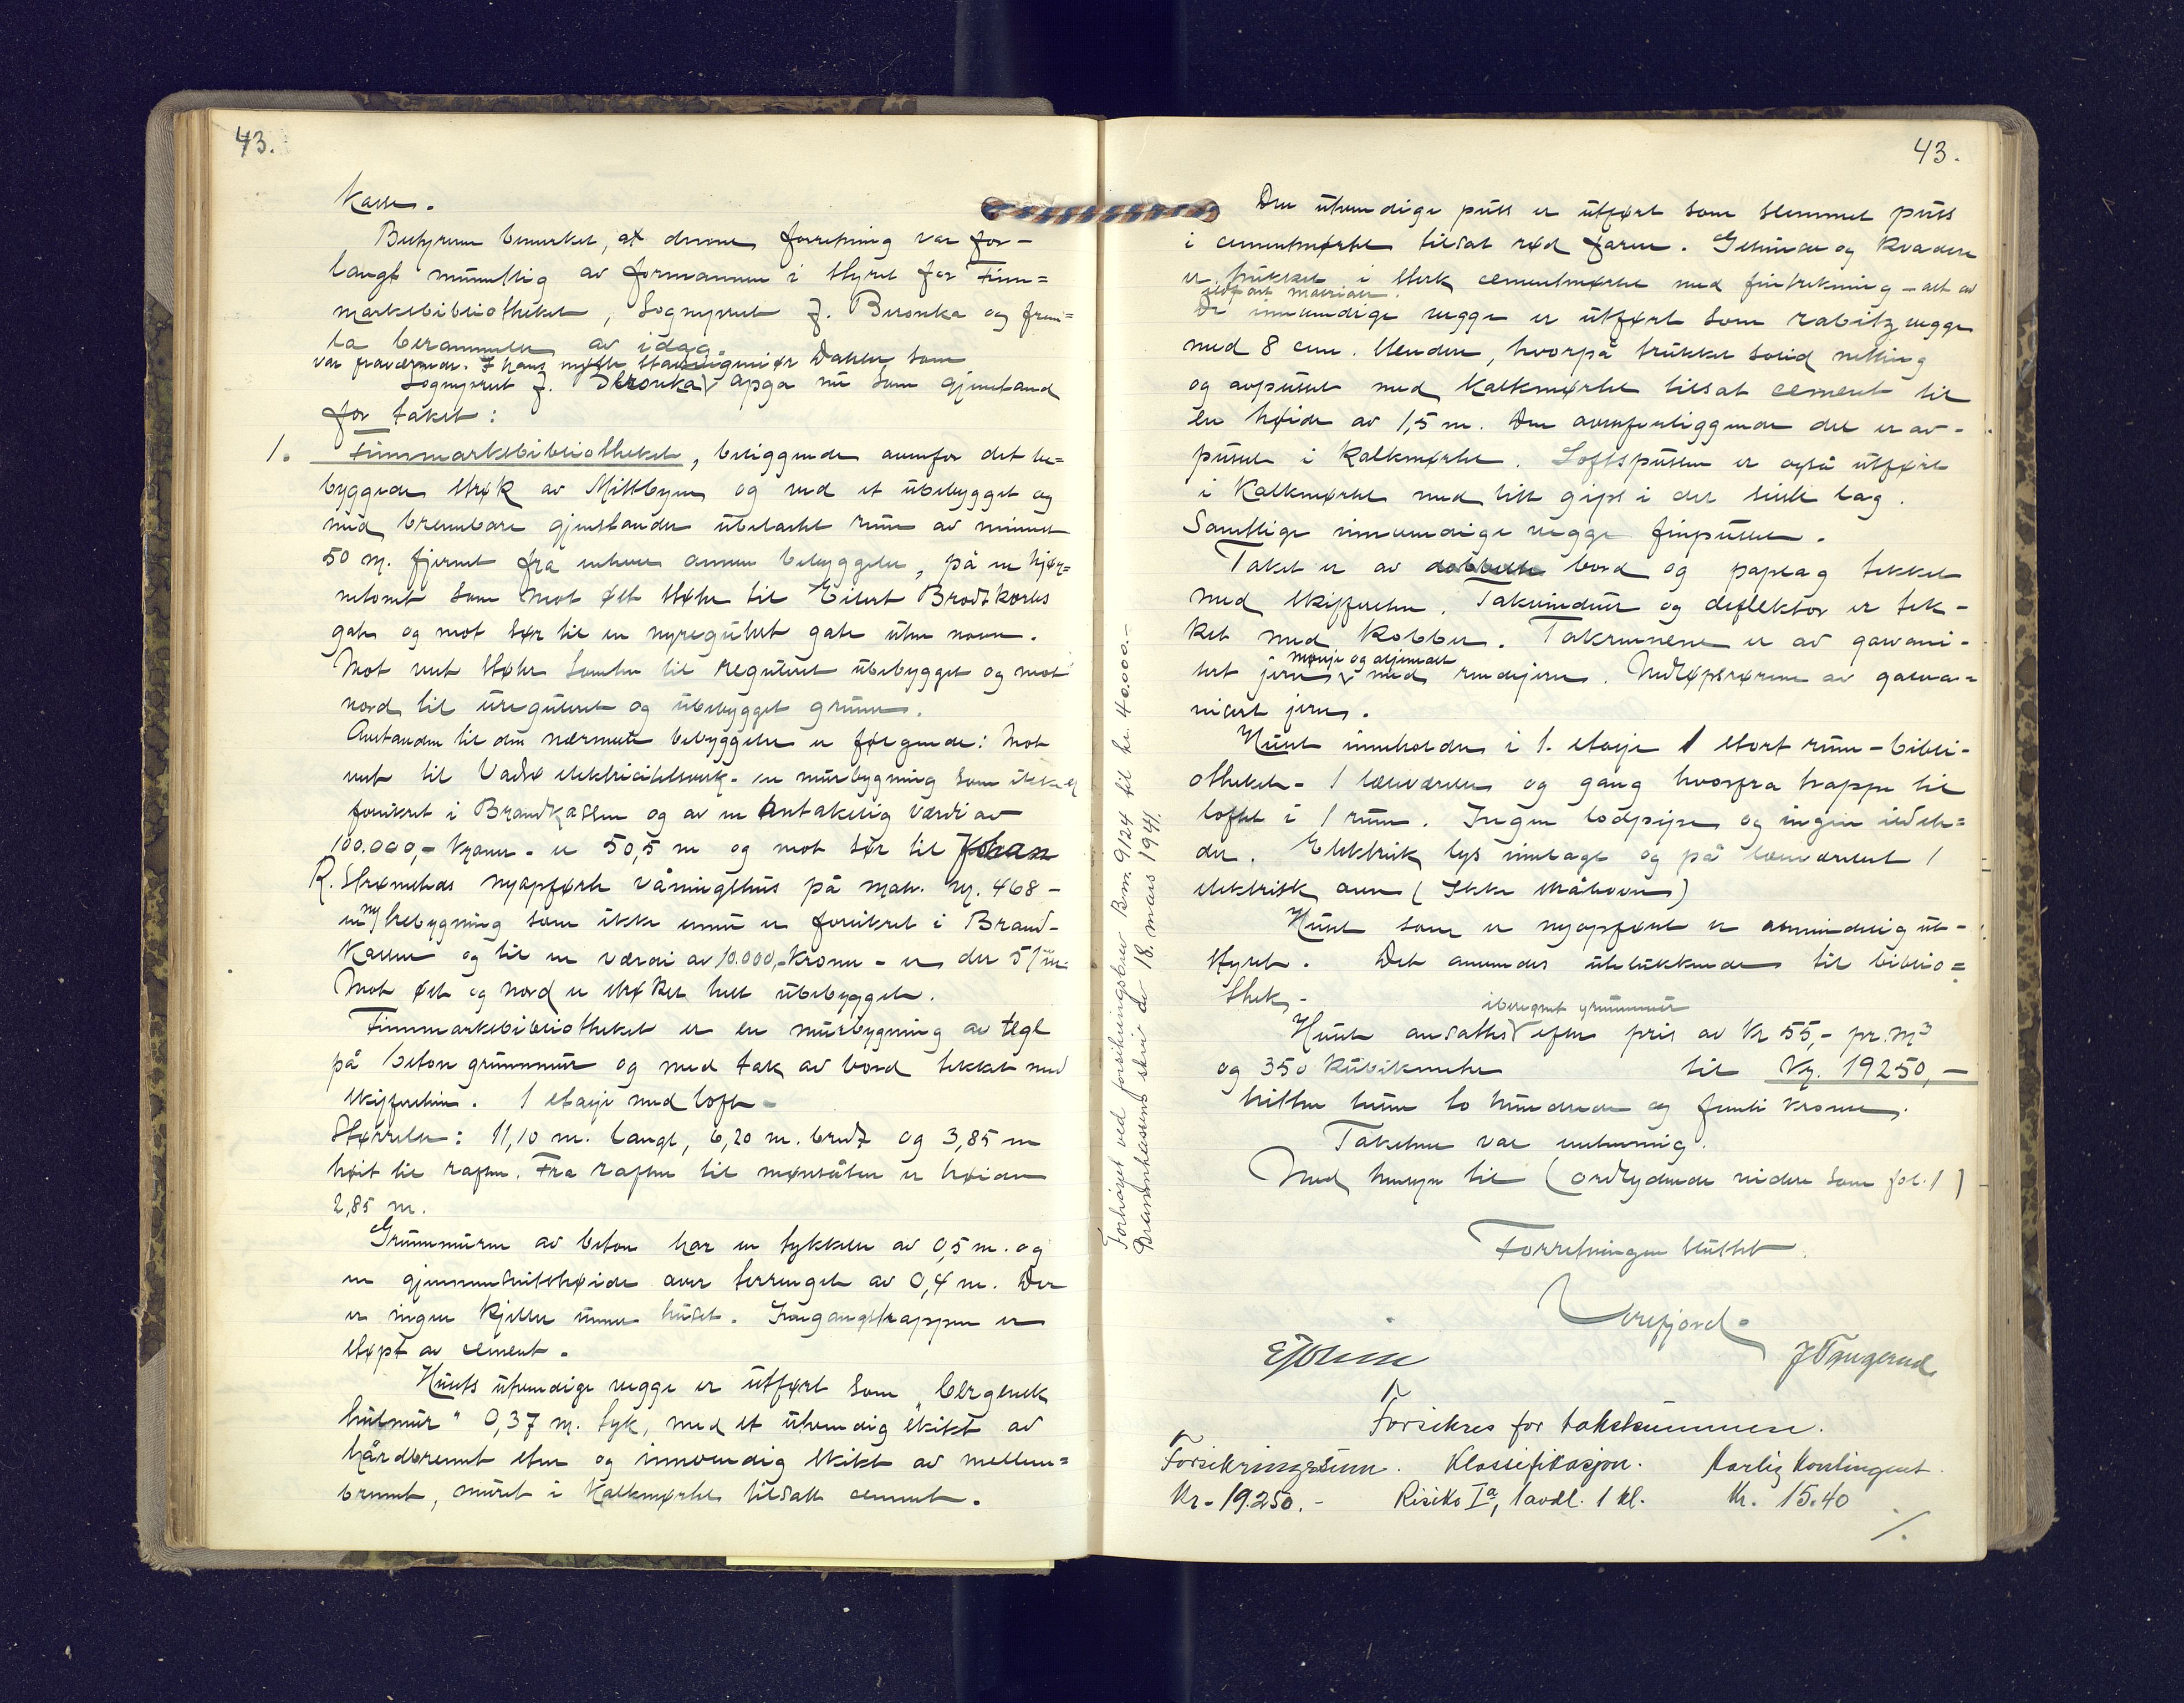 43.
Kassen.
Bestyreren bemerket, at denne forretning var for-
langt mundtlig av formannen i styret for Finn=
marksbibliotheket, Sogneprest J. Beronka og frem=
ta berammelse av idag.
var fraværende. I hans møtte stadsingeniør Dahler som
Sogneprest J. Beronka opga nu som gjenstand
for takst:
1. Finnmarksbibliotheket, beliggende ovenfor det be=
byggede strøk av Midtbyen og ved et ubebygget og
med brennbare gjenstander ubelastet rum av minst
50 m. fjernet fra enhver annen bebyggelse, på en hjør=
netomt som mot øst støter til Eilert Brodtkorbs
gate og mot sør til en nyregulert gate uten navn.
Mot vest støter tomten til regulert ubebygget og mot
nord til uregulert og ubebygget grunn.
Avstanden til den nærmeste bebyggelse er følgende: Mot
vest til Vadsø elektricitetsverk - en murbygning som ikke er
forsikret i Brandkassen og av en antakelig værdi av
100.000,- kroner - er 50,5 m og mot sør til Johan
R. Strømsteds nyopførte våningshus på matr. nr. 468 -
en ny trebygning som ikke ennu er forsikret i Brand-
kassen og til en værdi av 10.000,- kroner - er der 51 m.
Mot øst og nord er strøket helt ubebygget.
Finnmarksbibliotheket er en murbygning av tegl
på beton grunnmur og med tak av bord tekket med
skiffersten. 1 etasje med loft -
Størrelse: 11,10 m. langt, 6,20 m. bredt og 3,85 m
høit til raften. Fra raften til mønsåsen er høiden
2,85 m.
Grunnmuren av beton har en tykkelse av 0,5 m. og
en gjennemsnitshøide over terrenget av 0,4 m. Der
er ingen kjeller under huset. Inngangstrappen er
støpt av cement.
Husets utvendige vegge er utført som "bergensk
hulmur" 0,37 m. tyk, med et utvendig skikt av
hårdbrennt sten og innvendig skikt av mellem=
brennt, muret i kalkmørtel tilsatt cement.
Forhøiet ved forsikringsbrev Bnr. 9124 til kr. 40.000.-
Brannkassens skriv av 18. mars 1941.
43.
Den utvendige puss er utført som slemmet puss
i cementmørtel tilsat rød farve. Gesimser og kvadere
er trukket i sterk cementmørtel med fintrekning - alt av
ildfast materiale.
De innvendige vegge er utført som rabitzvegge
med 8 cm. stendere, hvorpå trukket solid netting
og avpusset med kalkmørtel tilsat cement til
en høide av 1,5 m. Den ovenforliggende del er av-
pusset i kalkmørtel. Loftspussen er også utført
i kalkmørtel med litt gips i det siste lag.
Samtlige innvendige vegge finpusset.
Taket er av bord og paplag tekket
med skiffersten. Takvinduer og deflektor er tek-
ket med kobber. Takrennene er av gavani-
sert jern mønje og oljemalt med rendejern. Nedløpsrørene av galva=
nisert jern.
Huset inneholder i 1. etasje 1 stort rum - bibli-
otheket - 1 læseværelse og gang hvorfra trappe til
loftet i 1 rum. Ingen lodpipe og ingen ildste=
der. Elektrisk lys innlagt og på læseværelset 1
elektrisk ovn (Ikke stråleovn)
Huset som er nyopført er almindelig ut-
styret. Det anvendes utelukkende til biblio=
thek -
Huset ansattes iberegnet grunnmur efter pris av kr 55,- pr. m3
og 350 kubikmeter til Kr. 19250,-
nitten tusen to hundrede og femti kroner.
Taksten var enstemmig.
Med hensyn til (ordlydende videre som fol. 1)
Forretningen sluttet.
Verefjord.
Forsikres for takstsummen.
Forsikringssum. Klassifikasjon. Aarlig kontingent.
Kr. 19.250.- Risiko Ia, 1 avdl. 1 kl. Kr. 15.40